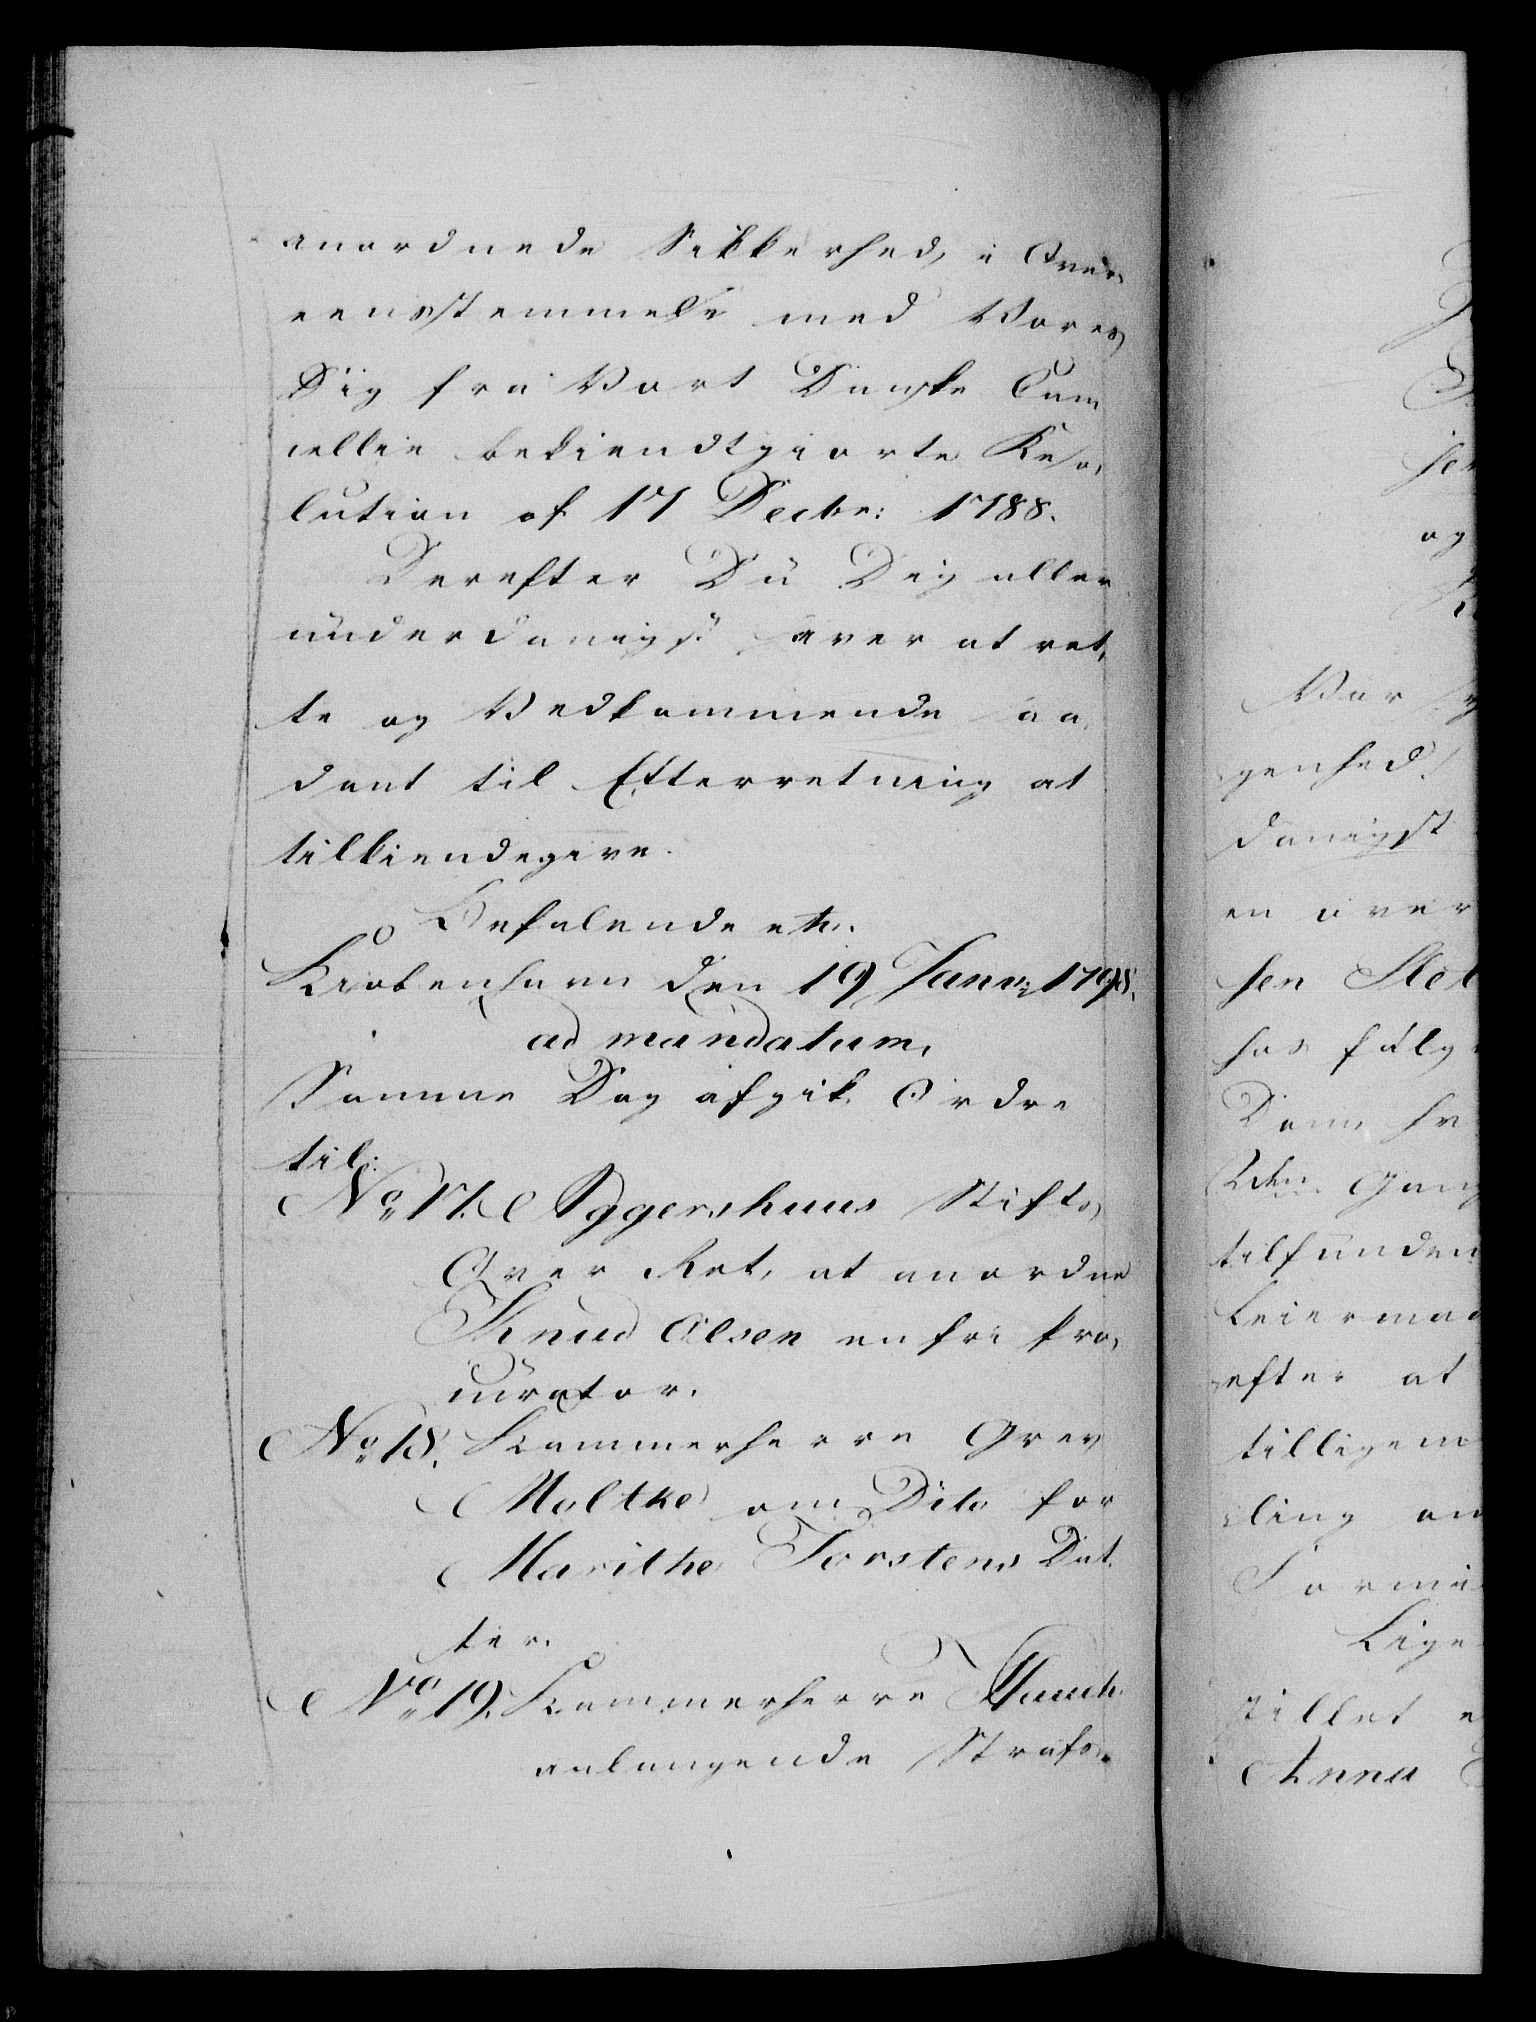 anordnede Sikkerhed, i Over,
eensstemmelse med Vores
Dig fra Vort Danske Can
cellie bekiendtgiorte Reso,
lution af 17 Decbr: 1788.
Derefter Du Dig aller
underdanigst haver at ret,
te og Vedkommende saa
dant til Efterretning at
tilkiendegive.
Befalende etc.
Kiobenhavn den 19 Janv: 1798.
ad mandatum.
Samme Dag afgik Ordre
til:
No 17. Aggershuus Stifts
Over Ret, at anordne
Knud Olsen en fri Pro,
curator.
No 18. Kammerherre Grev
Moltke om Dito for
Marithe Torstens Dat
ter.
No 19. Kammerherre Hauch
anlangende Strafs
Vor
genhed
danigst
en over
sen
hos følg
Dom, hv
2den Gang
tilfunden
Leiermaa
efter at
tilligem
ling an
Formi
Lige
stillet e
Anna
og